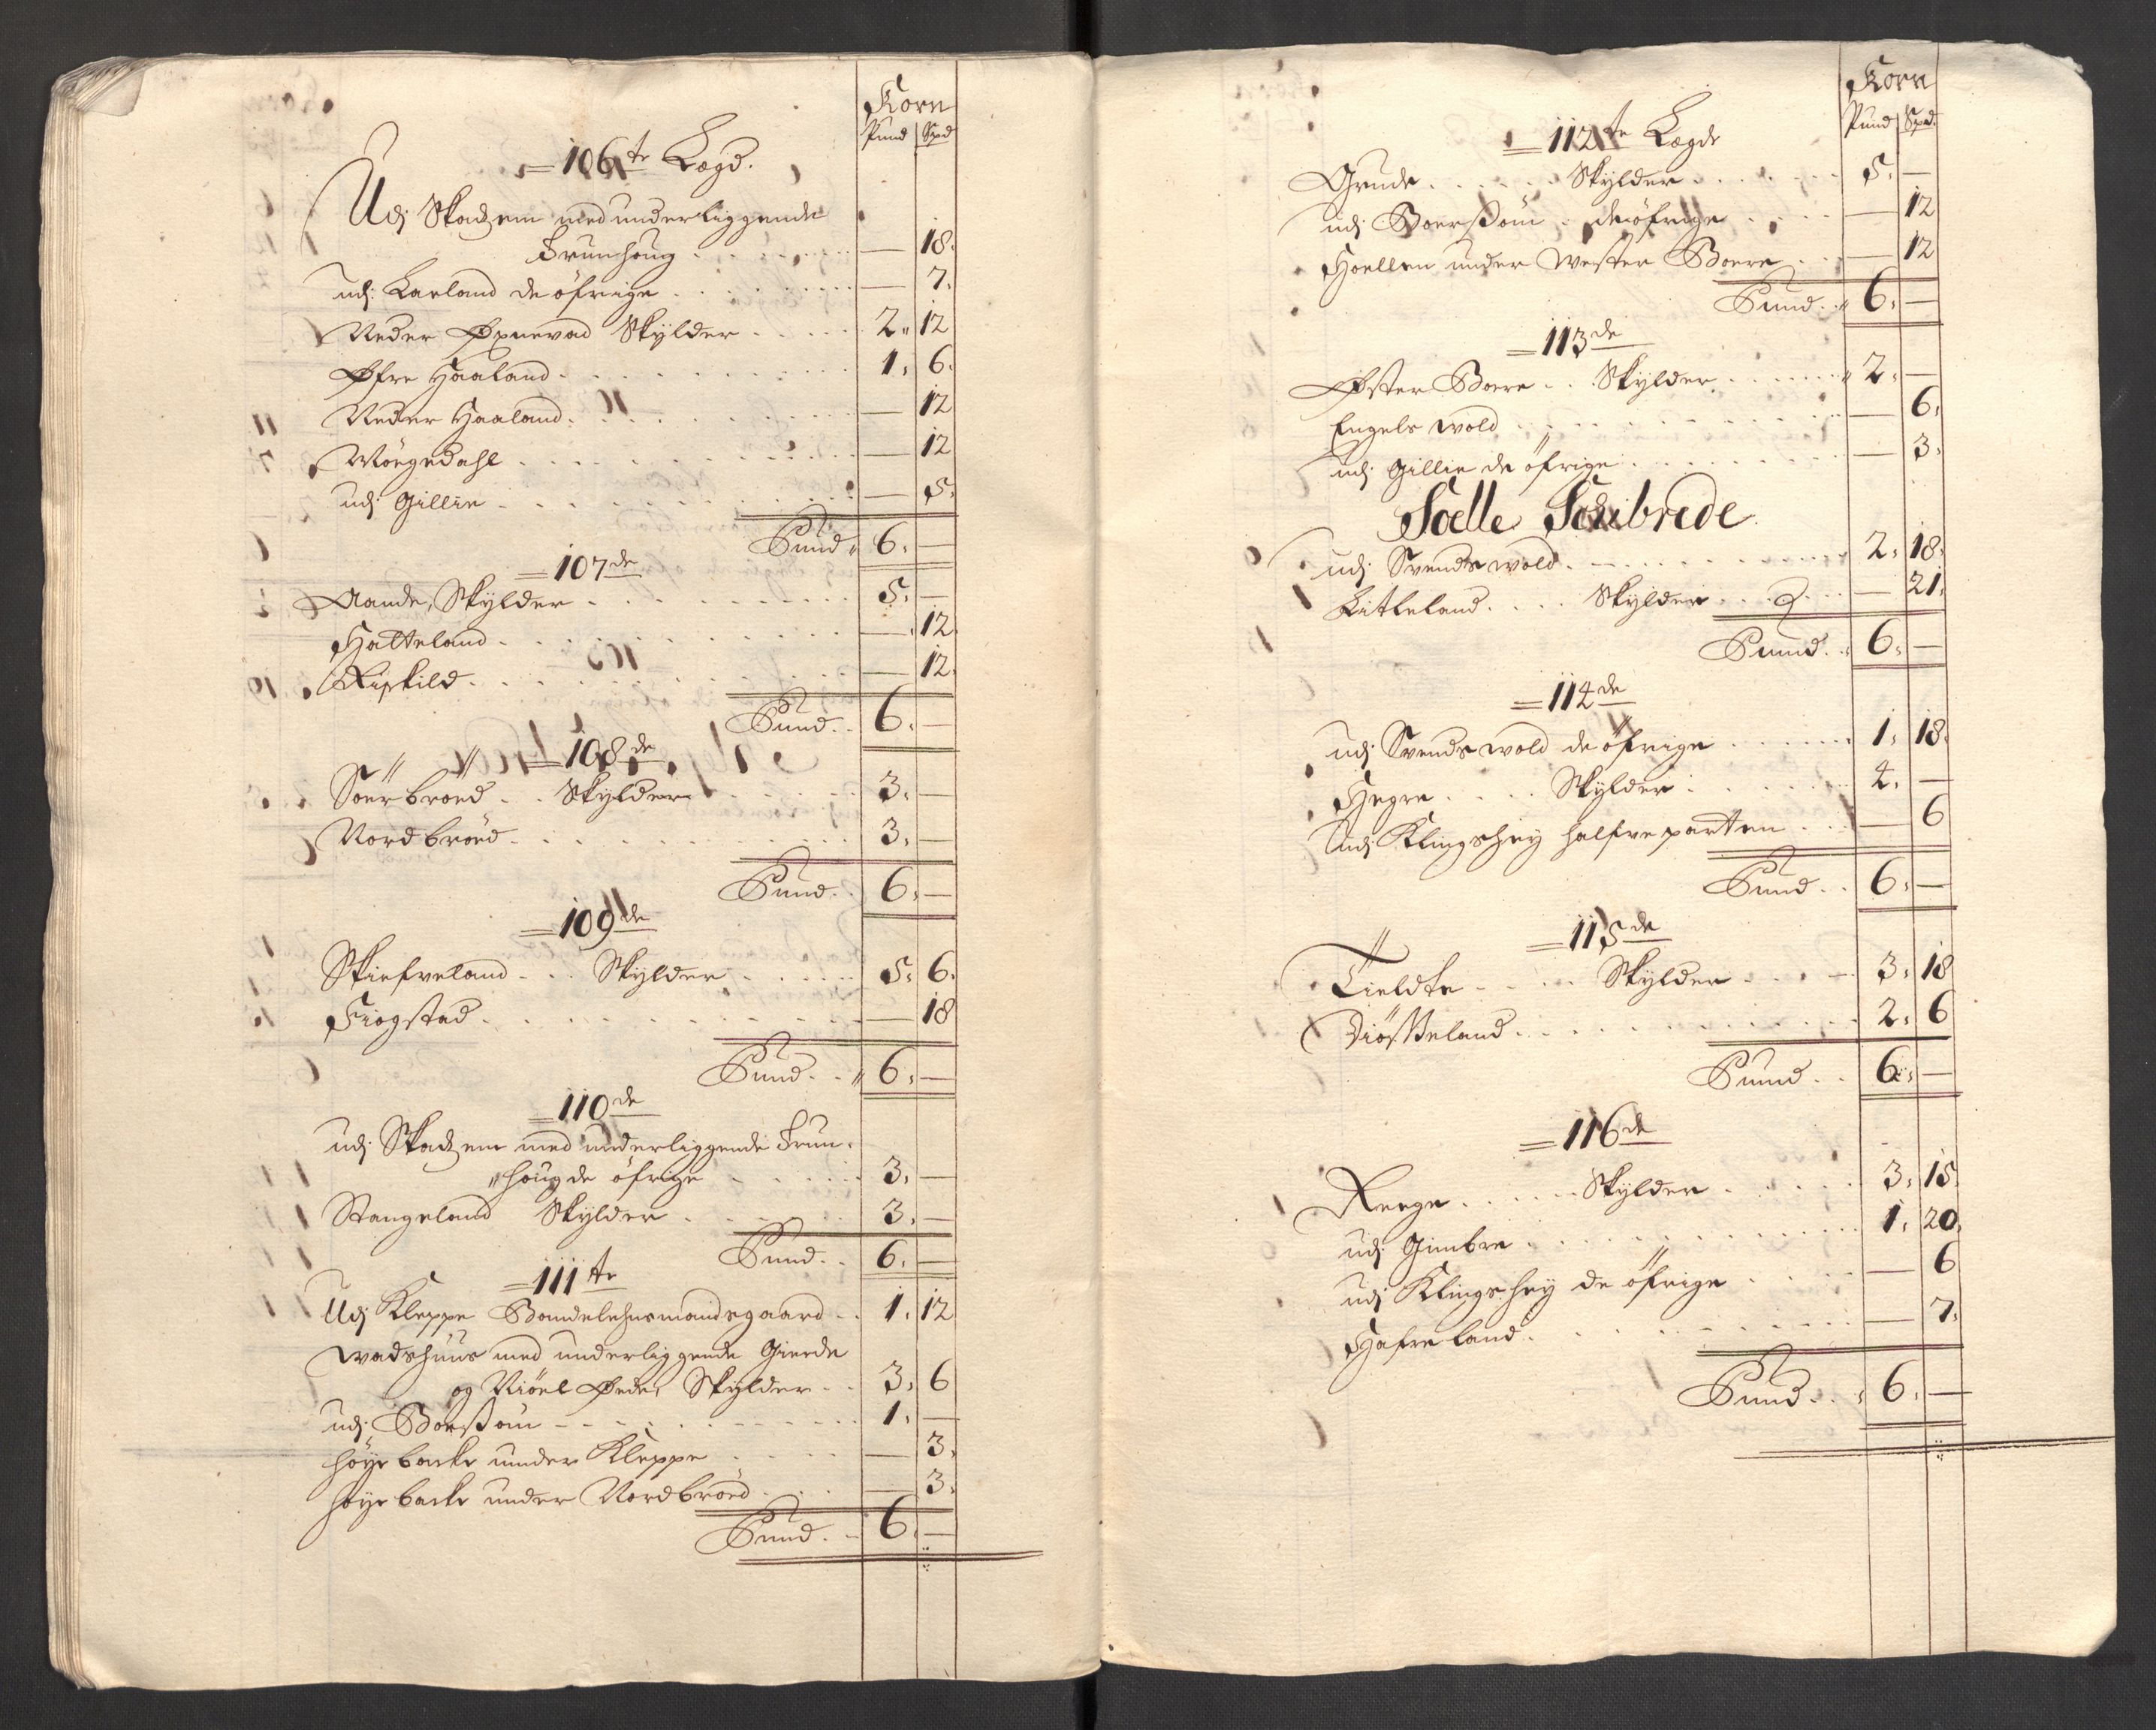 Korn
Pund Spd
106te Lægd.
Udj Skadsem med underliggende
Frunhoug . . . — 18.
udj Laeland de öfrige . . . — 7.
Neder Øxnevad Skylder . . . 2. 12
Øfre Haaland . . . 1. 6.
Neder Haaland . . . — 12
Wöegedahl . . . — 12
udj Gillie . . . — 5.
Pund. 6. —
107de
Aande, Skylder . . . 5. —
Hatteland . . . — 12.
Riskild . . . — 12.
Pund. 6. —
108de
Söerbröed . . Skylder . . . 3. —
Nordbröed . . . 3. —
Pund. 6. —
109de
Skiefveland . . . Skylder . . . 5. 6.
Fiogstad . . . — 18
Pund. 6. —
110de
udj Skadsem med underliggende Frun-
houg de öfrige . . . 3. —
Stangeland Skylder . . . 3. —
Pund. 6. —
111te
Udj Kleppe Bondelehnsmandsgaard . . 1. 12
Wadshuus med underliggende Gierde
og Niöel Øede, Skylder . . 3. 6
udj Boerssom . . . 1. —
höye backe under Kleppe . . . — 3.
höye backe under Nordbröed . . . — 3.
Pund. 6. —
Korn
Pund Spd.
112te Lægde
Grude . . . Skylder . . . 5. —
udj Boerssom . de öfrige . . . — 12
Hoellen under Wester Boere . . . — 12
Pund. 6. —
113de
Øster Boere . . Skylder . . . 2. —
Engels wold . . . — 6.
udj Gillie de öfrige . . . — 3.
Soelle Schibrede
udj Svends wold . . . 2. 18.
Litleland . . . Skylder . . . — 21.
Pund. 6. —
114de
udj Svends wold de öfrige . . . 1. 18.
Hegre . . . Skylder . . . 4. —
Udj Klingshey halfve parten . . . — 6
Pund. 6. —
115de
Tieldte . . . Skylder . . . 3. 18
Tiösseland . . . 2. 6
Pund. 6. —
116de
Reege . . . Skylder . . . 3. 15.
udj Gimbre . . . 1. 20.
udj Klingshey de öfrige . . . — 6
Hafreland . . . — 7.
Pund. 6. —